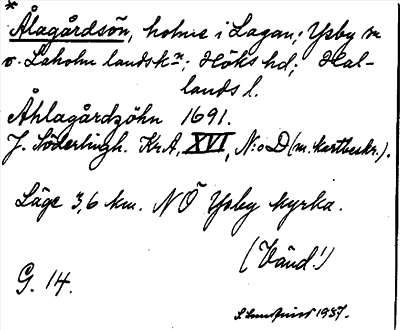 *
Ålagårdsön, holme i Lagan; Ysby sn
o. Laholm landskn: Höks hd; Hal-
lands l.
Åhlagårdzöhn 1691.
J. Söderlingh. KrA, XVI, N:o D (m. kartbeskr.).
Läge 3,6 km. NÖ Ysby kyrka.
(Vänd!)
G. 14.
1937.